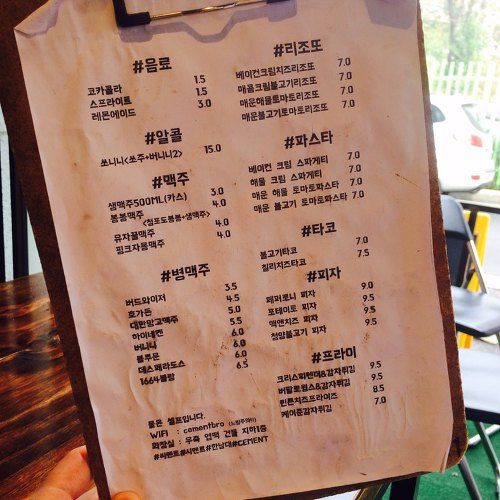 #음료
코카콜라 1.5
스프라이트 1.5
레몬에이드 3.0
#알콜
쏘니니<쏘주+버니니2> 15.0
#맥주
생맥주500ML(카스) 3.0
봉봉맥주 4.0
<청포도봉봉+생맥주>
유자꿀맥주 4.0
핑크자몽맥주 4.0
#병맥주
버드와이저 3.5
호가든 4.5
대한망고맥주 5.0
하이네켄 5.5
버니니 6.0
블루문 6.0
데스페라도스 6.0
1664블랑 6.5
물은 셀프입니다.
WIFI : cementbro
화장실 : 우측 옆떡 건물 지하1층
#씨멘트#시멘트#한남대#CEMENT
#리조또
베이컨크림치즈리조또 7.0
매콤크림불고기리조또 7.0
매운해물토마토리조또 7.0
매운불고기토마토리조또 7.0
#파스타
베이컨 크림 스파게티 7.0
해물 크림 스파게티 7.0
매운 해물 토마토파스타 7.0
매운 불고기 토마토파스타 7.0
#타코
불고기타코 7.0
칠리치즈타코 7.5
#피자
페퍼로니 피자 9.0
포테이토 피자 9.5
맥앤치즈 피자 9.5
청양불고기 피자 9.5
#프라이
크리스피텐더&감자튀김 9.5
버팔로윙스&감자튀김 9.5
칠리치즈프라이즈 8.5
케이준감자튀김 7.0